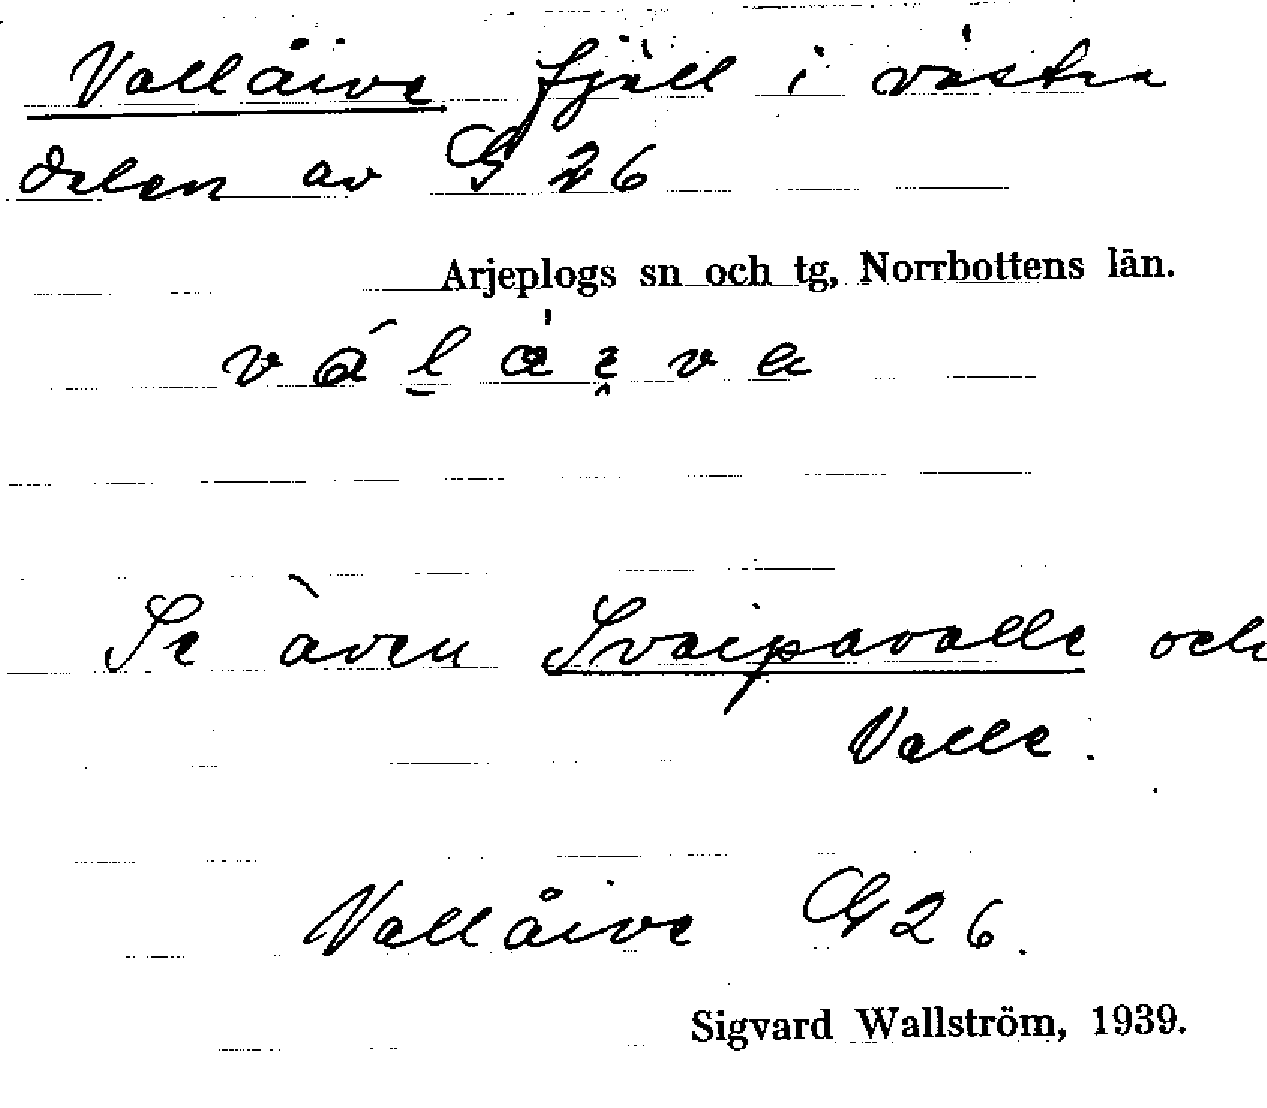 Vallåive fjäll i västra
delen av G 26
Arjeplogs sn och tg, Norrbottens län.
Se även Svaipavalle och
Valle.
Vallåive G 26.
Sigvard Wallström, 1939.